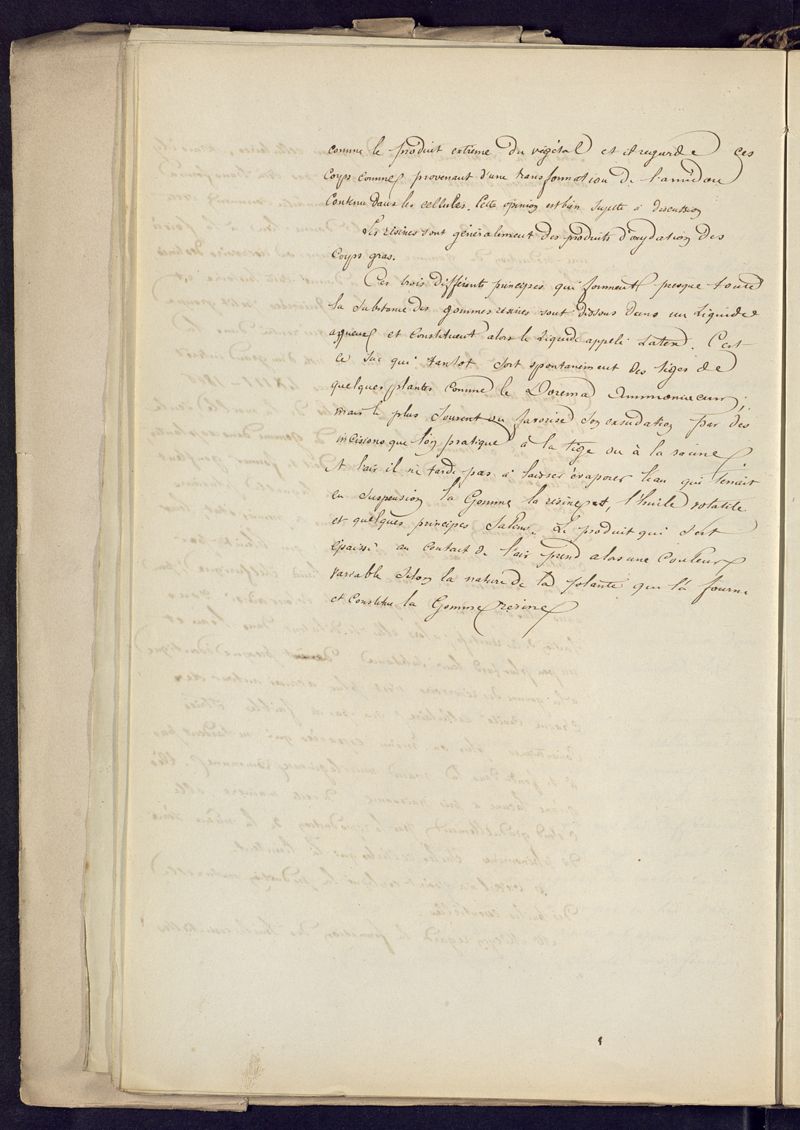 comme le produit extreme du végétal et il regarde ces
corps comme provenant d'une transformation de l'amidon
contenu dans les cellules. Cette opinion est bien sujette à discussion
Les résines sont généralement des produits d'oxydation des
Corps gras.
Ces trois différents principes qui forment presque toute
la substance des gommes résines sont dissous dans un Liquide
aqueux et constituent alors le liquide appelé Latex. C'est
ce suc qui tantot sort spontanement des tiges de
quelques plantes comme le Dorema Ammoniacum;
mais le plus souvent on favorise son exsudation par des
incisions que l'on pratique à la tige ou à la racine
A l'air il ne tarde pas à laisser évaporer l'eau qui tenait
en suspension la Gomme la resine, l'huile volatile
et quelques principes salins. Le produit qui s'est
épaissi au contact de l'air prend alors une couleur
variable selon la nature de la plante qui l'a fourni
et constitue la Gomme résine